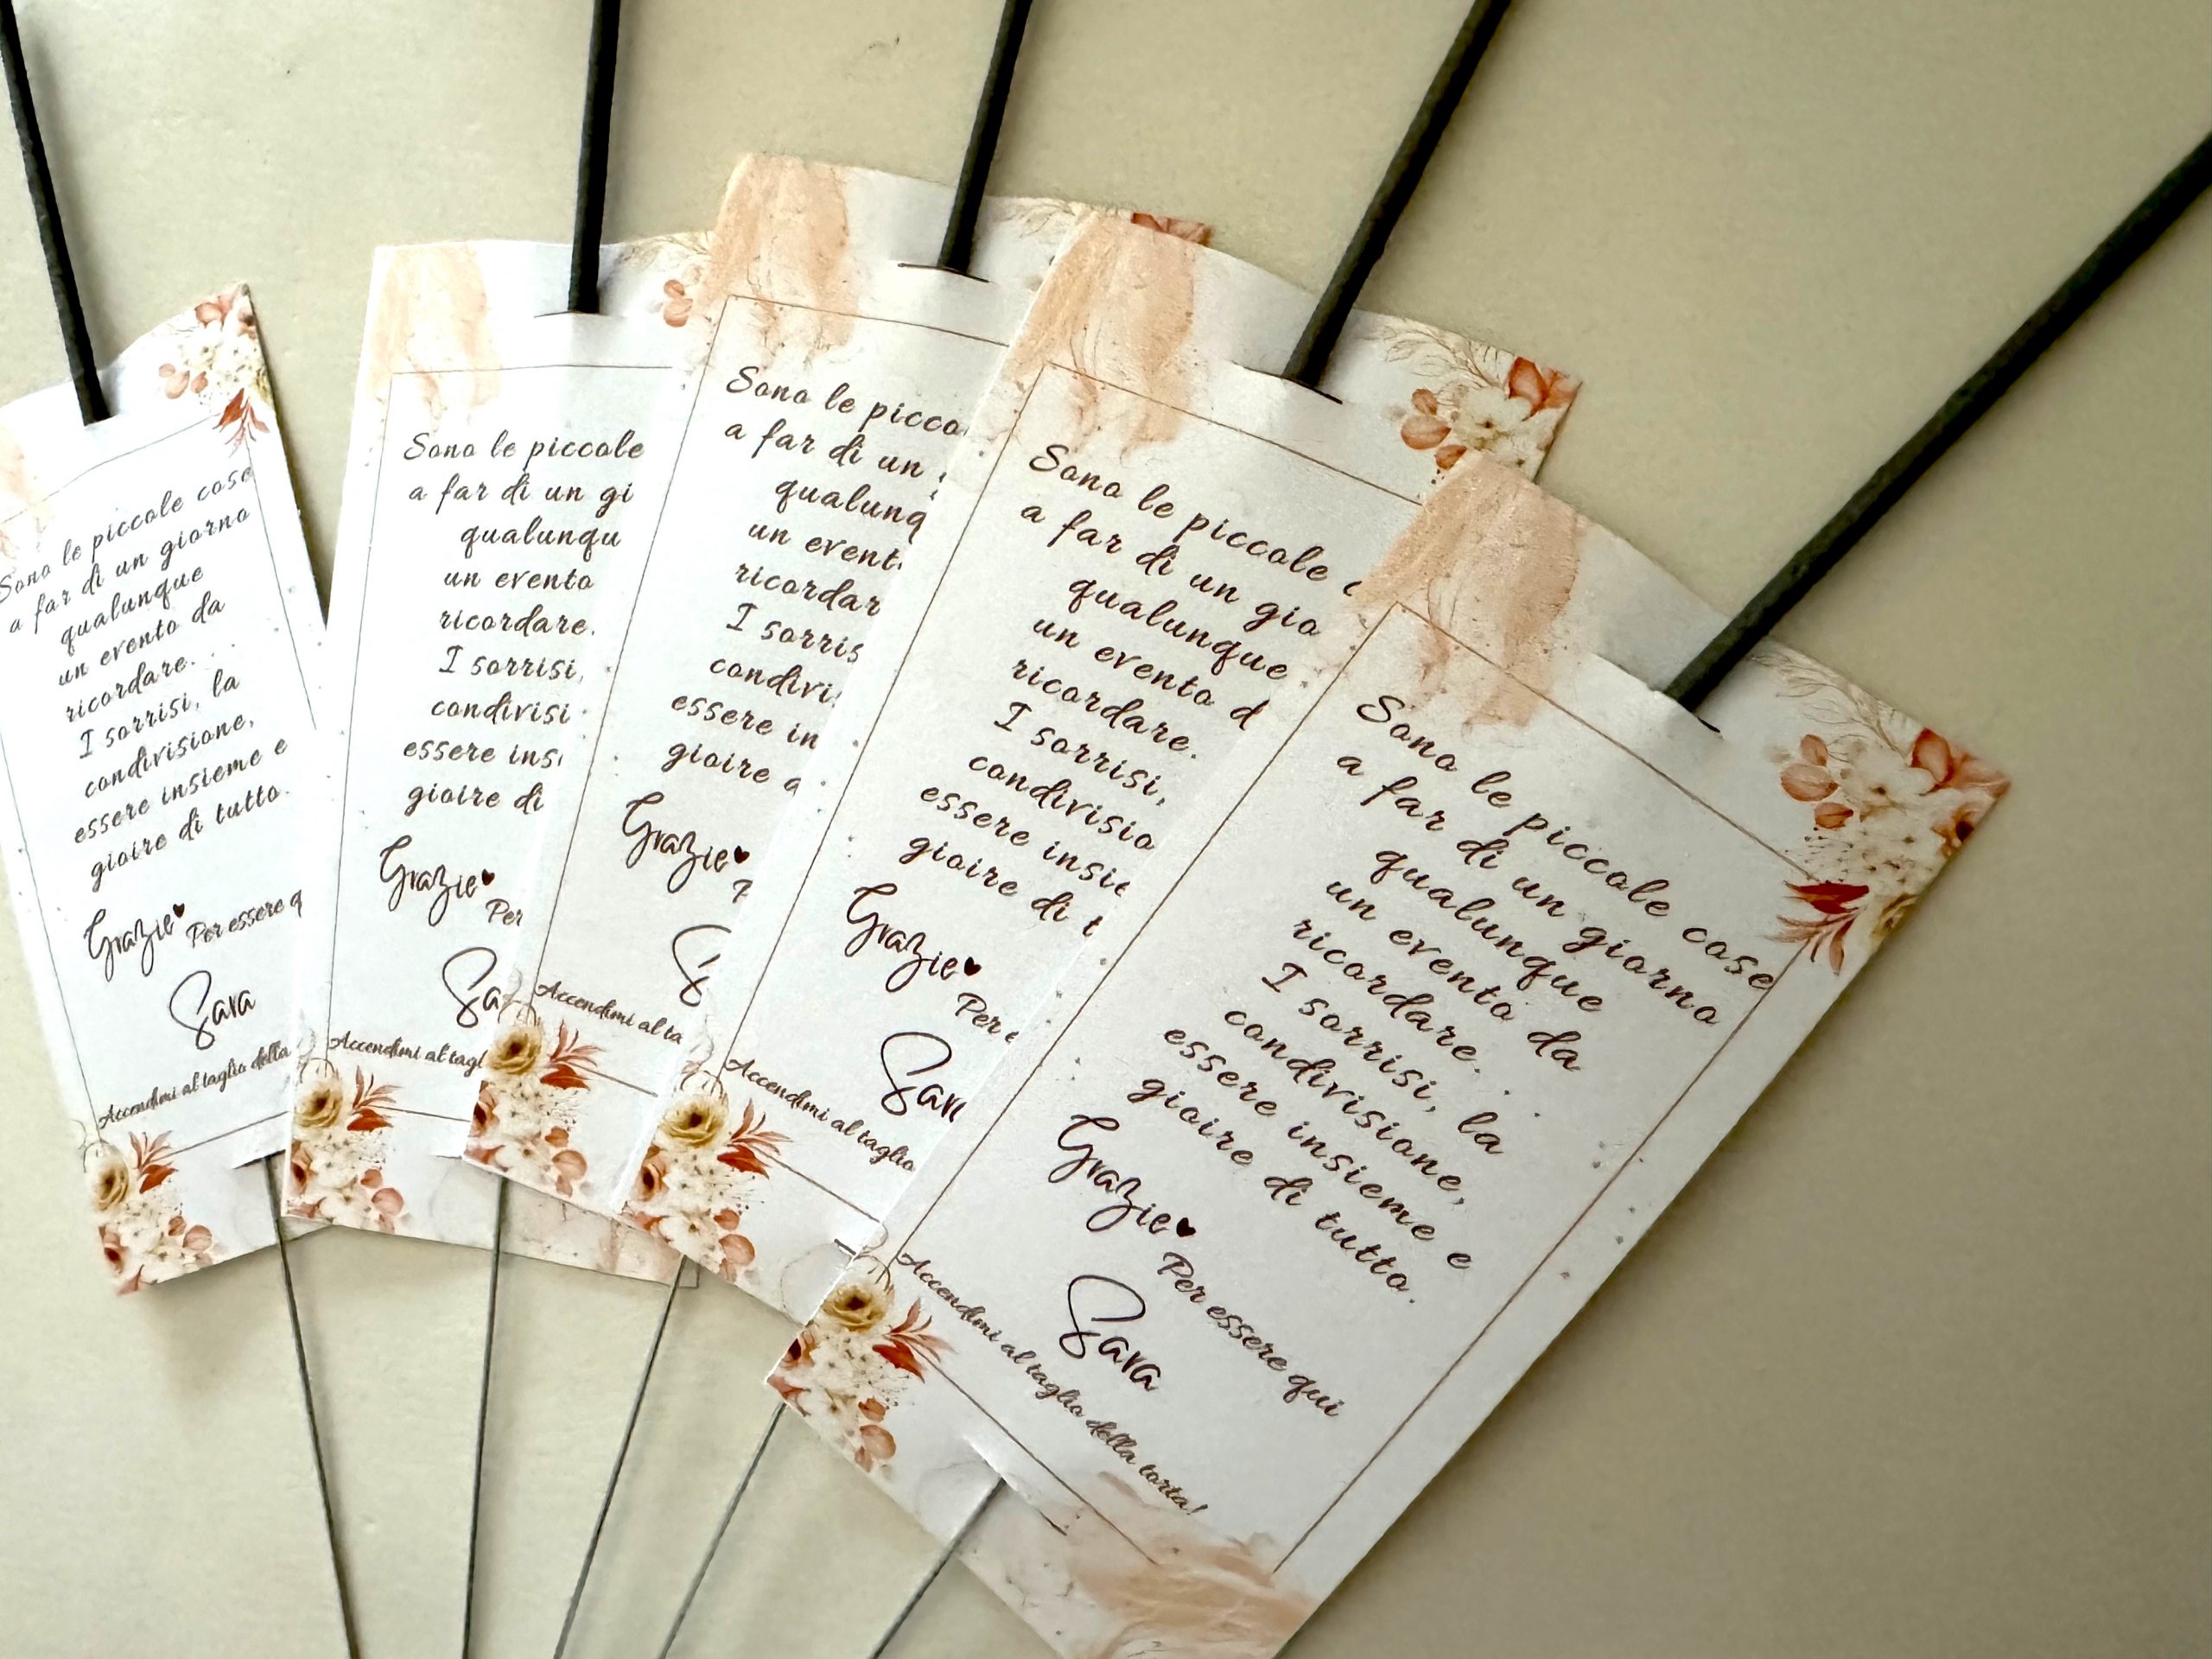 Sono le piccole cose
a far di un giorno
qualunque
un evento da
ricordare. . .
I sorrisi, la
condivisione,
essere insieme e
gioire di tutto.
Grazie
Per essere q
Sara
Accendimi al taglio della
Sono le piccole
a far di un gi
qualunqu
un evento
ricordare.
I sorrisi,
condivisi
essere insi
gioire di
Grazie
Per
Sa
Accendimi al tagl
Sono le picco
a far di un
qualunq
un event
ricordar
I sorris
condivi
essere in
gioire d
Grazie
P
S
Accendimi al ta
Sono le piccole c
a far di un gio
qualunque
un evento d
ricordare.
I sorrisi,
condivisio
essere insie
gioire di t
Grazie
Per e
Sara
Accendimi al taglio
Sono le piccole cose
a far di un giorno
qualunque
un evento da
ricordare. . .
I sorrisi, la
condivisione,
essere insieme e
gioire di tutto.
Grazie
Per essere qui
Sara
Accendimi al taglio della torta!